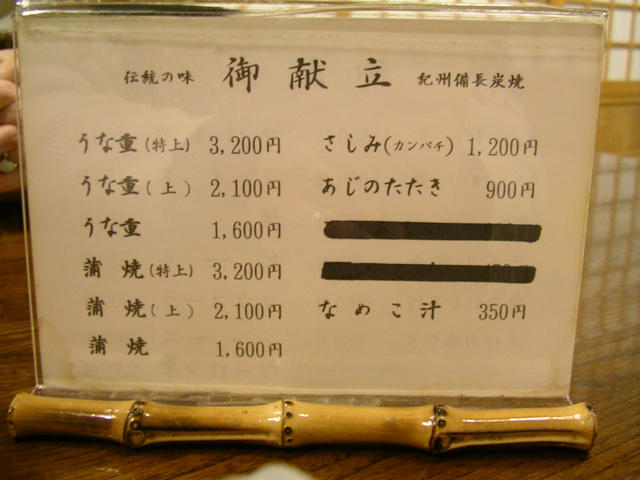 伝統の味 御献立 紀州備長炭焼
うな重(特上) 3,200円
うな重(上) 2,100円
うな重 1,600円
蒲焼(特上) 3,200円
蒲焼(上) 2,100円
蒲焼 1,600円
さしみ(カンパチ) 1,200円
あじのたたき 900円
なめこ汁 350円